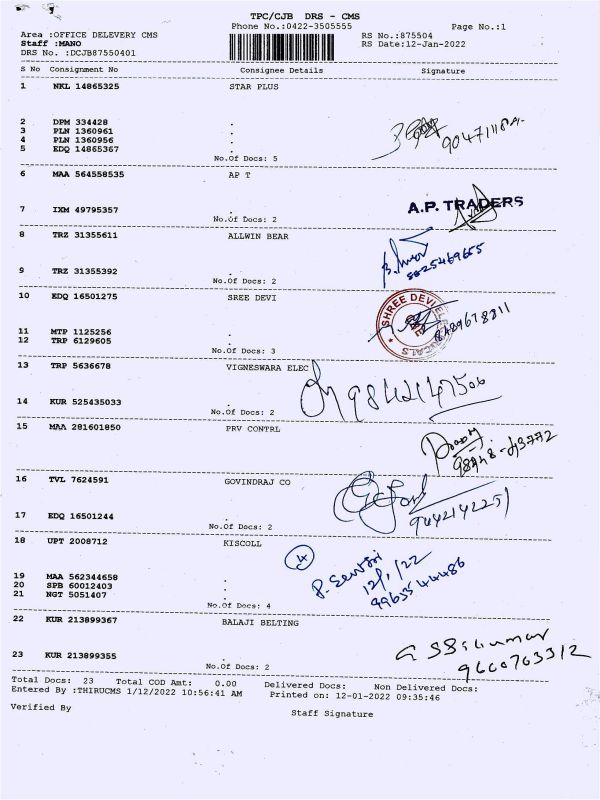 TPC/CJB DRS - CMS
Phone No.:0422-3505555
Page No.:1
Area :OFFICE DELEVERY CMS
RS No.:875504
Staff :MANO
RS Date:12-Jan-2022
DRS No. :DCJB87550401
S No Consignment No Consignee Details Signature
1 NKL 14865325 STAR PLUS
2 DPM 334428 .
3 PLN 1360961 .
4 PLN 1360956 .
5 EDQ 14865367 .
No.Of Docs: 5
6 MAA 564558535 AP T
A.P. TRADERS
7 IXM 49795357 .
No.Of Docs: 2
8 TRZ 31355611 ALLWIN BEAR
9 TRZ 31355392 .
No.Of Docs: 2
10 EDQ 16501275 SREE DEVI
SHREE DEVI
11 MTP 1125256 .
12 TRP 6129605 .
No.Of Docs: 3
13 TRP 5636678 VIGNESWARA ELEC
9842147506
14 KUR 525435033 .
No.Of Docs: 2
15 MAA 281601850 PRV CONTRL
16 TVL 7624591 GOVINDRAJ CO
9442142251
17 EDQ 16501244 .
No.Of Docs: 2
18 UPT 2008712 KISCOLL
4
12/1/22
19 MAA 562344658 .
20 SPB 60012403 .
21 NGT 5051407 .
No.Of Docs: 4
22 KUR 213899367 BALAJI BELTING
9600703312
23 KUR 213899355 .
No.Of Docs: 2
Total Docs: 23 Total COD Amt: 0.00 Delivered Docs: Non Delivered Docs:
Entered By :THIRUCMS 1/12/2022 10:56:41 AM Printed on: 12-01-2022 09:35:46
Verified By
Staff Signature